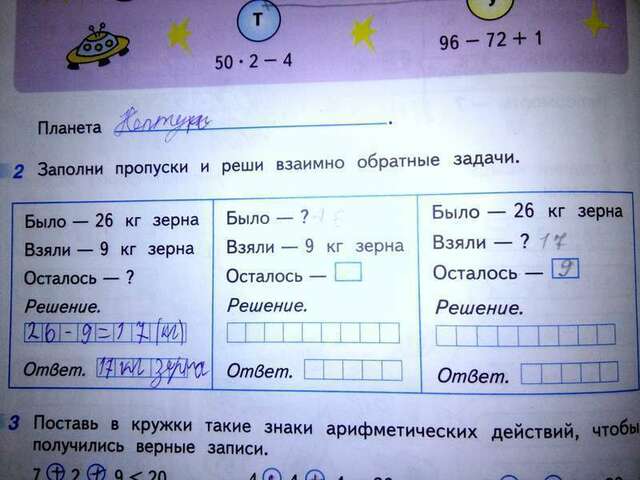 Т
50 · 2 − 4
96 − 72 + 1
Планета Нептун.
2 Заполни пропуски и реши взаимно обратные задачи.
Было — 26 кг зерна
Взяли — 9 кг зерна
Осталось — ?
Решение.
26-9=17(кг)
Ответ. 17 кг зерна
Было — ?
Взяли — 9 кг зерна
Осталось —
Решение.
Ответ.
Было — 26 кг зерна
Взяли — ? 17
Осталось — 9
Решение.
Ответ.
3 Поставь в кружки такие знаки арифметических действий, чтобы
получились верные записи.
7 + 2 + 9 < 20